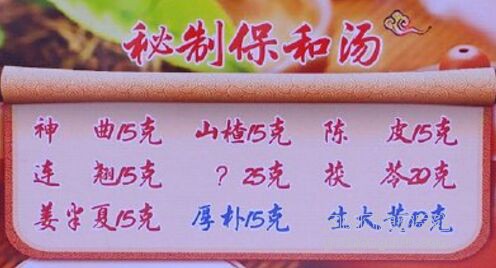 秘制保和汤
神曲15克 山楂15克 陈皮15克
连翘15克 ? 25克 茯苓20克
姜半夏15克 厚朴15克 生大黄10克